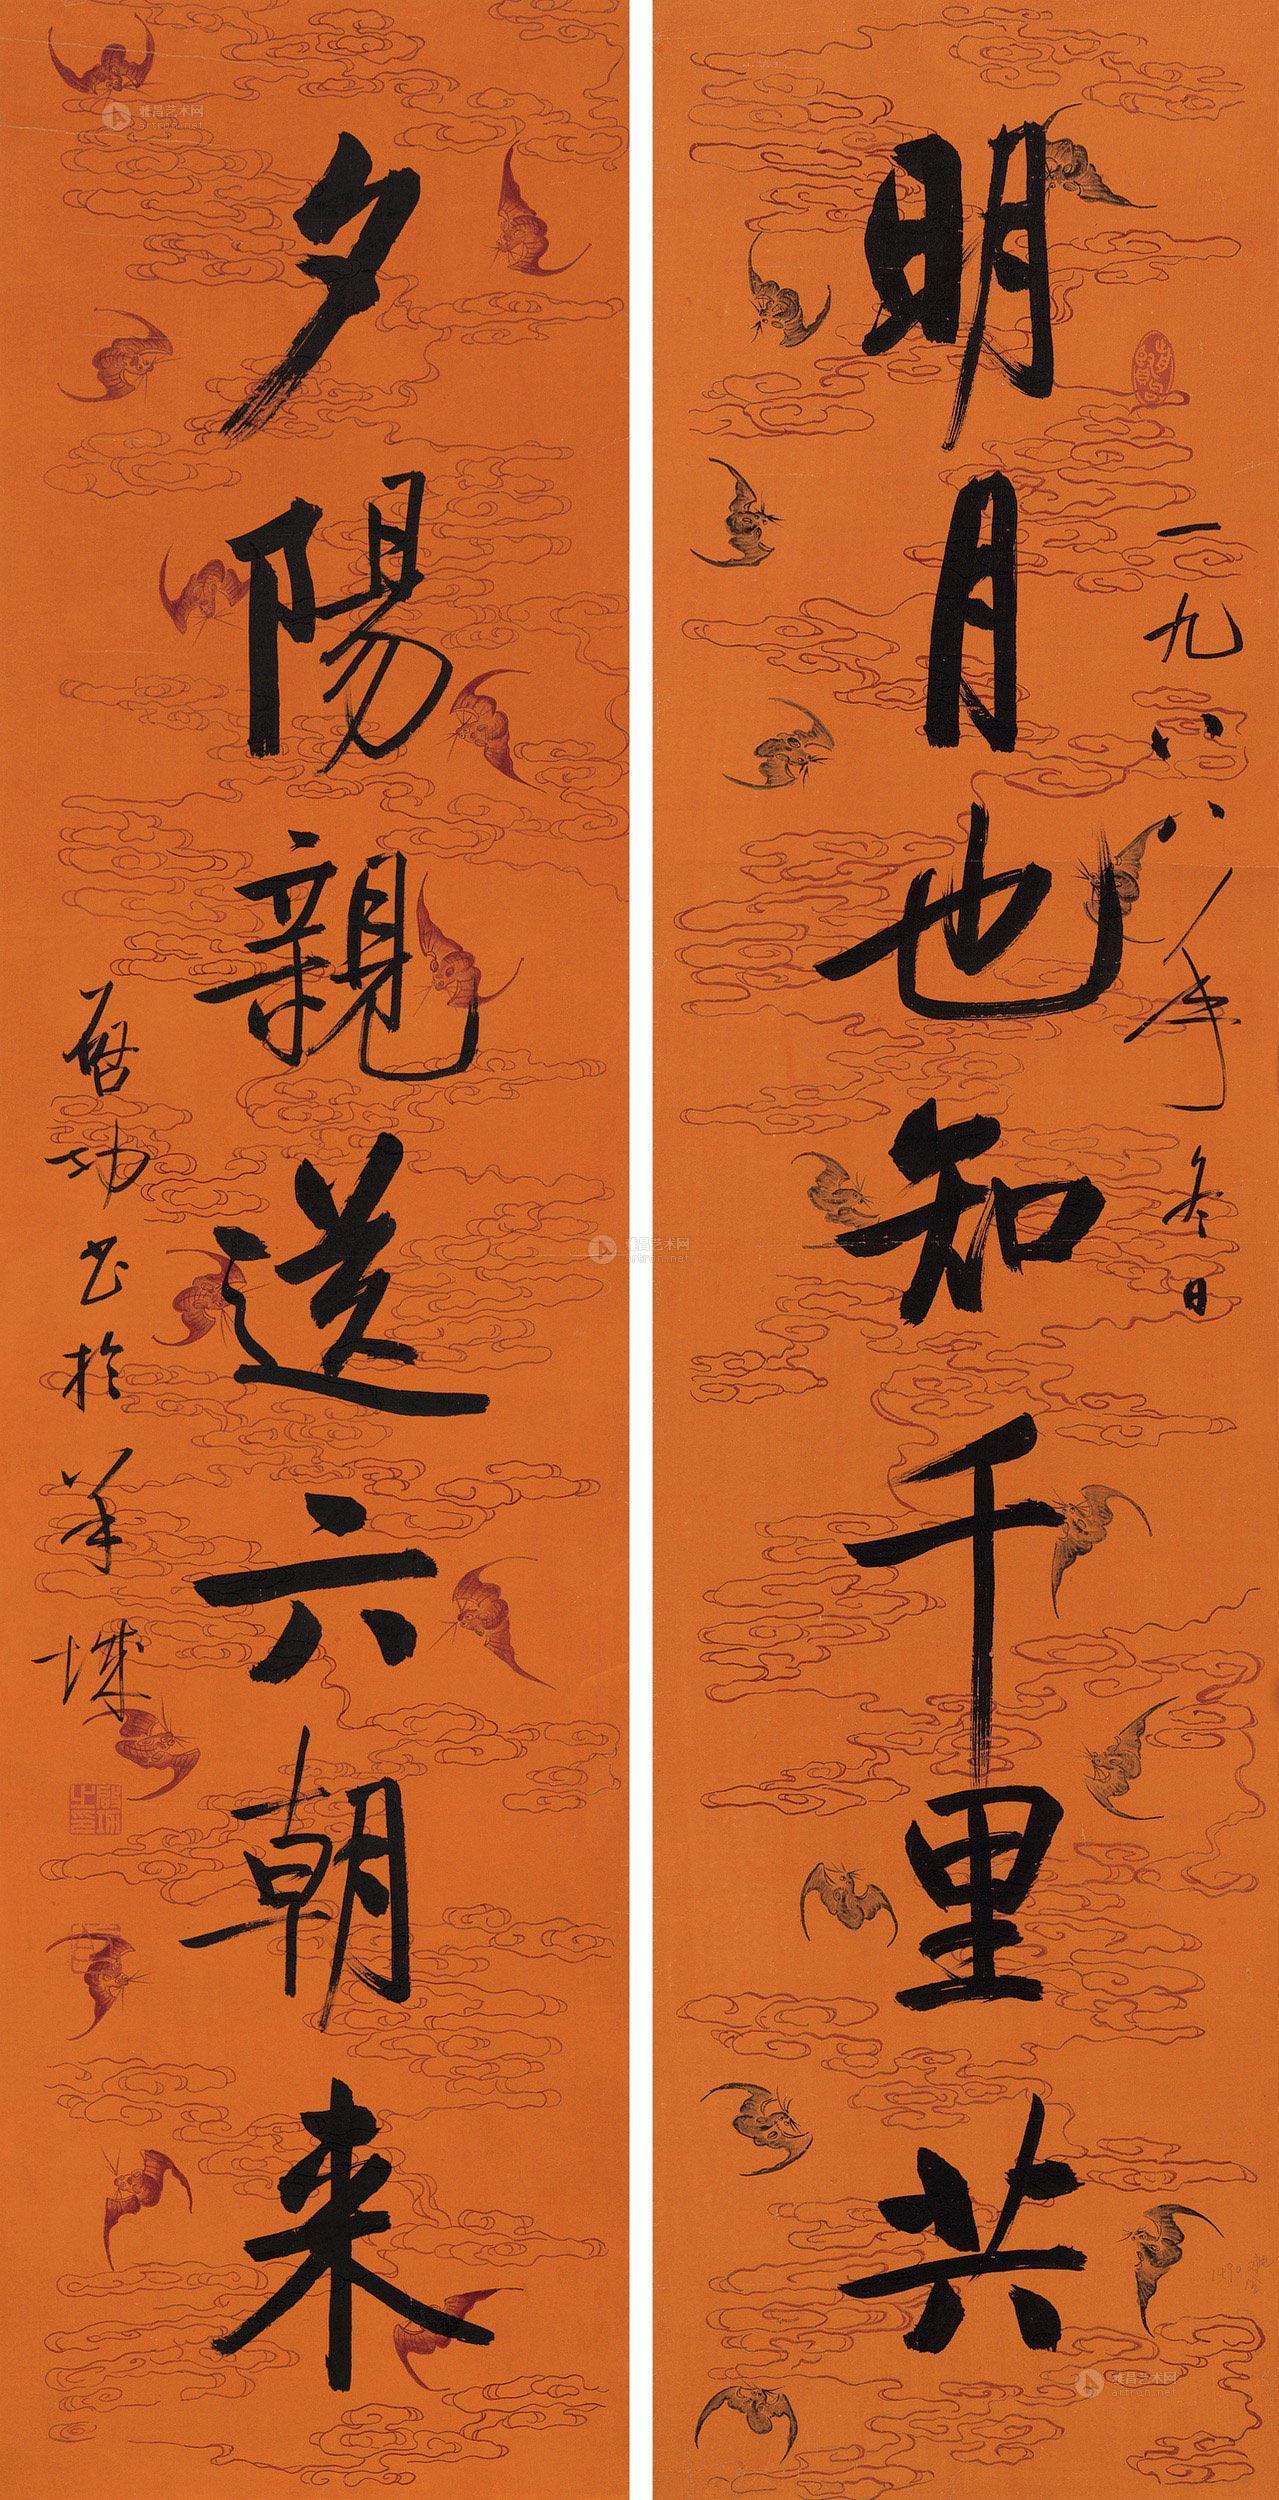 明月也知千里共
一九八八年冬日
夕陽親送六朝來
启功书於羊城
雅昌艺术网
artron.net
雅昌艺术网
artron.net
雅昌艺术网
artron.net